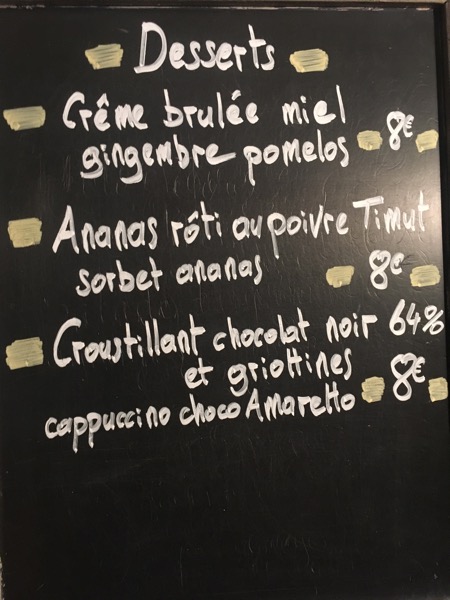 Desserts
Crême brulée miel
gingembre pomelos 8€
Ananas rôti au poivre Timut
sorbet ananas 8€
Croustillant chocolat noir 64%
et griottines
cappuccino choco Amaretto 8€